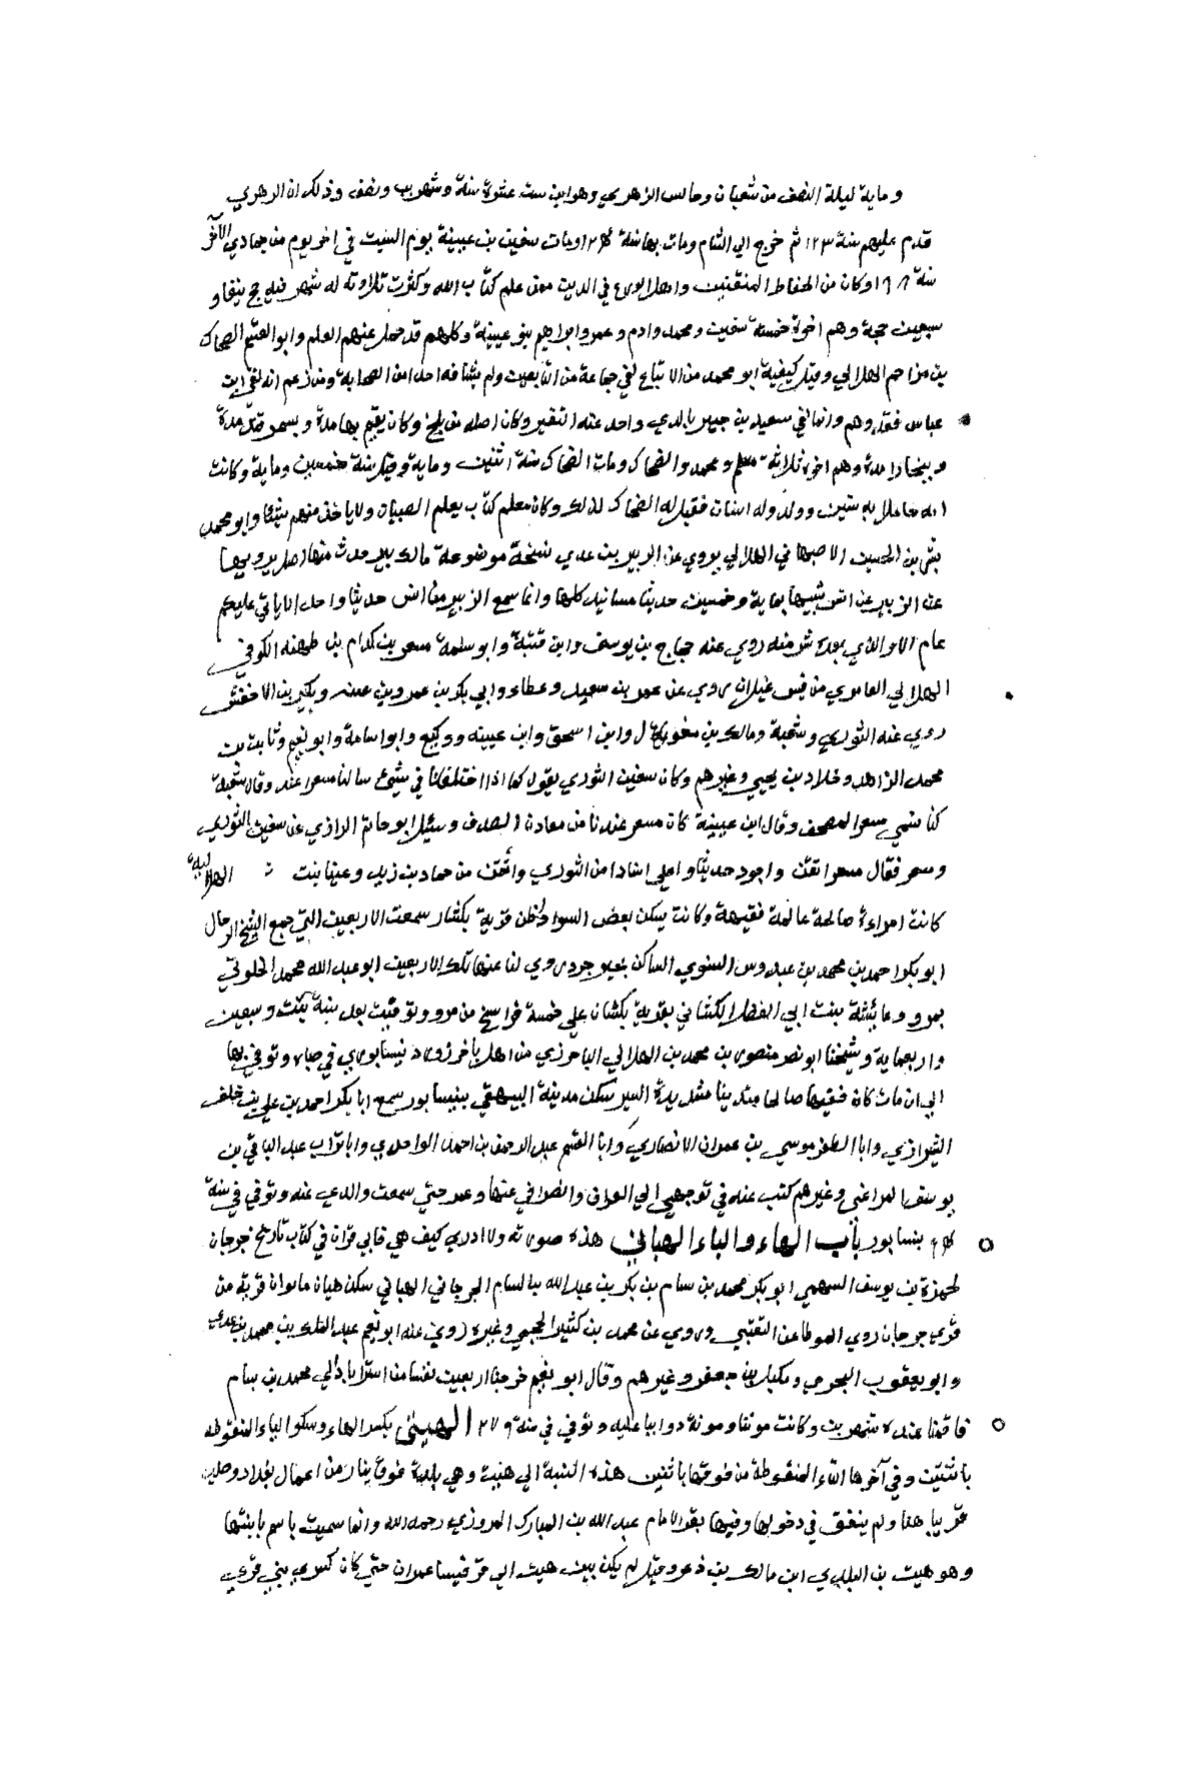 وماية ليلة النصف من شعبان وجالس الزهري وهو ابن ست عشرة سنة وشهرين ونصف وذلك ان الزهري
قدم عليهم سنة ١٢٣ ثم خرج الي الشام ومات بها سنة ١٢٤ ومات سفين بن عيينة يوم السبت في اخر يوم من جمادي الآخر
سنة ١٩٨ وكان من الحفاظ المتقنين واهل الورع في الدين ممن علم كتاب الله وكثرت تلاوته له شهر فيه حج نيفا و
سبعين حجة وهم اخوة خمسة سفين ومحمد وادم وعمر وابراهيم بنو عيينة وكلهم قد حمل عنهم العلم وابو القسم الضحاك
بن مزاحم الهلالي وقيل كنيته ابو محمد من الاتباع لقي جماعة من التابعين ولم يشافه احدا من الصحابة ومن زعم انه لقي ابن
عباس فقد وهم وانما لقي سعيد بن جبير بالري واخذ عنه التفسير وكان اصله من بلخ وكان يقيم بها مدة و بسمرقند مدة
و ببخارا مدة وهم اخوة ثلاثة مسلم و محمد والضحاك ومات الضحاك سنة اثنين وماية وقيل سنة خمسين وماية وكانت
امه حاملا به سنين وولد وله اسنان فقيل له الضحاك لذلك وكان معلم كتاب يعلم الصبيان ولا ياخذ منهم شيئا وابو محمد
بشر بن الحسين الاصبهاني الهلالي يروي عن الزبير بن عدي نسخة موضوعة ما لكبير حديث منها اصل يرويها
عن الزبير عن انس شبيها بماية وخمسين حديثا مسانيد كلها وانما سمع الزبير من انس حديثا واحدا لا ياتي عليكم
عام الا والذي بعده شر منه روي عنه حجاج بن يوسف وابن قتيبة وابو سلمة مسعر بن كدام بن ظهير الكوفي
الهلالي العامري من قيس غيلان يروي عن عمر بن سعيد وعطاء وابي بكر بن عمرو بن عتبه وبكير بن الاخنس
روي عنه الثوري وشعبة ومالك بن مغول وابن اسحق وابن عيينه ووكيع وابو اسامة وابو نعيم وثابت بن
محمد الزاهد وخلاد بن يحيي وغيرهم وكان سفين الثوري يقول كنا اذا اختلفنا في شيئ سالنا مسعرا عنه وقال شعبة
كنا نسمي مسعر المصحف وقال ابن عيينة كان مسعر عندنا من معادن الصدق وسئل ابو حاتم الرازي عن سفين الثوري
ومسعر فقال مسعر اتقن واجود حديثا واعلي اسنادا من الثوري واتقن من حماد بن زيد و بنت الهلالية
كانت امراءة صالحة عالمة فقيهة وكانت يسكن بعض السواد اظن قرية بكشان سمعت الاربعين التي جمع الشيخ الرحال
ابو بكر احمد بن محمد بن عبدوس النسوي الساكن روي لنا عنها تلك الاربعين ابو عبد الله محمد الخلوقي
بمرو وعائشة بنت ابي الفضل الكشاني بقرية بكشان علي خمسة فراسخ من مرو وتوفيت بعد سنة وسبعين
واربعماية وشيخنا ابو نصر منصور بن محمد بن الهلالي الباخرزي من اهل باخرز ورد نيسابوري في صباه وتوفي بها
الي ان مات كان فقيها صالحا متدينا سديدة السير سكن مدينة البيهقي بنيسابور سمع ابا بكر احمد بن علي بن خلف
الشيرازي وابا المظفر موسي بن عمران الانصاري وابا القسم عبد الرحمن بن احمد الواحدي وابا تراب عبد الباقي بن
يوسف المراغي وغيرهم كتب عنه في توجهي الي العراق وانصرافي عنها وعمر حتي سمعت والدي عنه وتوفي في سنة
بنيسابور باب الهاء والباء الهباني هذه صورته ولا ادري كيف هي فاني قرات في كتاب تاريخ جرجان
لحمزة بن يوسف السهمي ابو بكر محمد بن بسام بن بكر بن عبد الله بن بسام الجرجاني الهباني سكن هبان ما بوان قرية من
قري جرجان روي الموطا عن القعنبي وروي عن محمد بن كثير الجمحي وغيره روي عنه ابو نعيم عبد الملك بن محمد بن عدي
وابو يعقوب البحري وبكيل بن جعفر وغيرهم وقال ابو نعيم خرجنا اربعين نفسا من استراباد الي محمد بن بسام
فاقمنا عنده شهرين وكانت مؤنتنا ومونة دوابنا عليه وتوفي في سنة ٢٧٩ الهيتي بكسر الهاء وسكوا الياء المنقوطه
باثنتين وفي آخرها التاء المنقوطة من فوقها باثنين هذه النسبة الي هيت وهي بلدة فوق انبار من اعمال بغداد وصلت
قريبا منها ولم يتفق لي دخولها وفيها قبر الامام عبد الله بن المبارك المروزي رحمه الله وانما سميت باسم بانيها
وهو هيت بن البلندي ابن مالك بن ذعر وقيل لم يكن بين هيت الي قرقيسا عمران حتي كان كسري بني قري